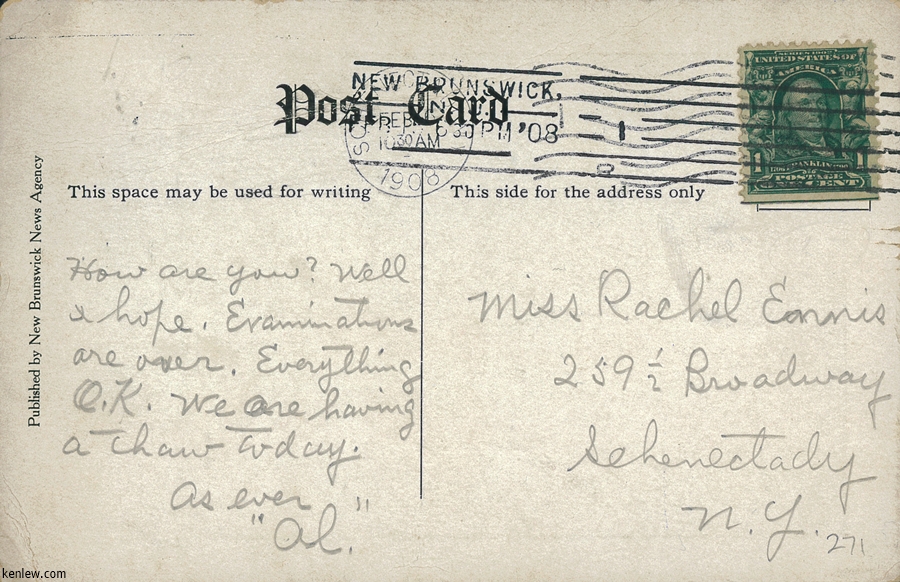 Post Card
NEW BRUNSWICK,
FEB 6 30 PM '08
10 30 AM
1908
SERIES 1902
UNITED STATES OF
AMERICA
FRANKLIN
1 1
POSTAGE
ONE CENT
This space may be used for writing
This side for the address only
Published by New Brunswick News Agency
How are you? Well
I hope. Examinations
are over. Everything
O.K. We are having
a thaw today.
As ever
"Al."
Miss Rachel Ennis
259 ½ Broadway
Schenectady
N.Y.
271
kenlew.com